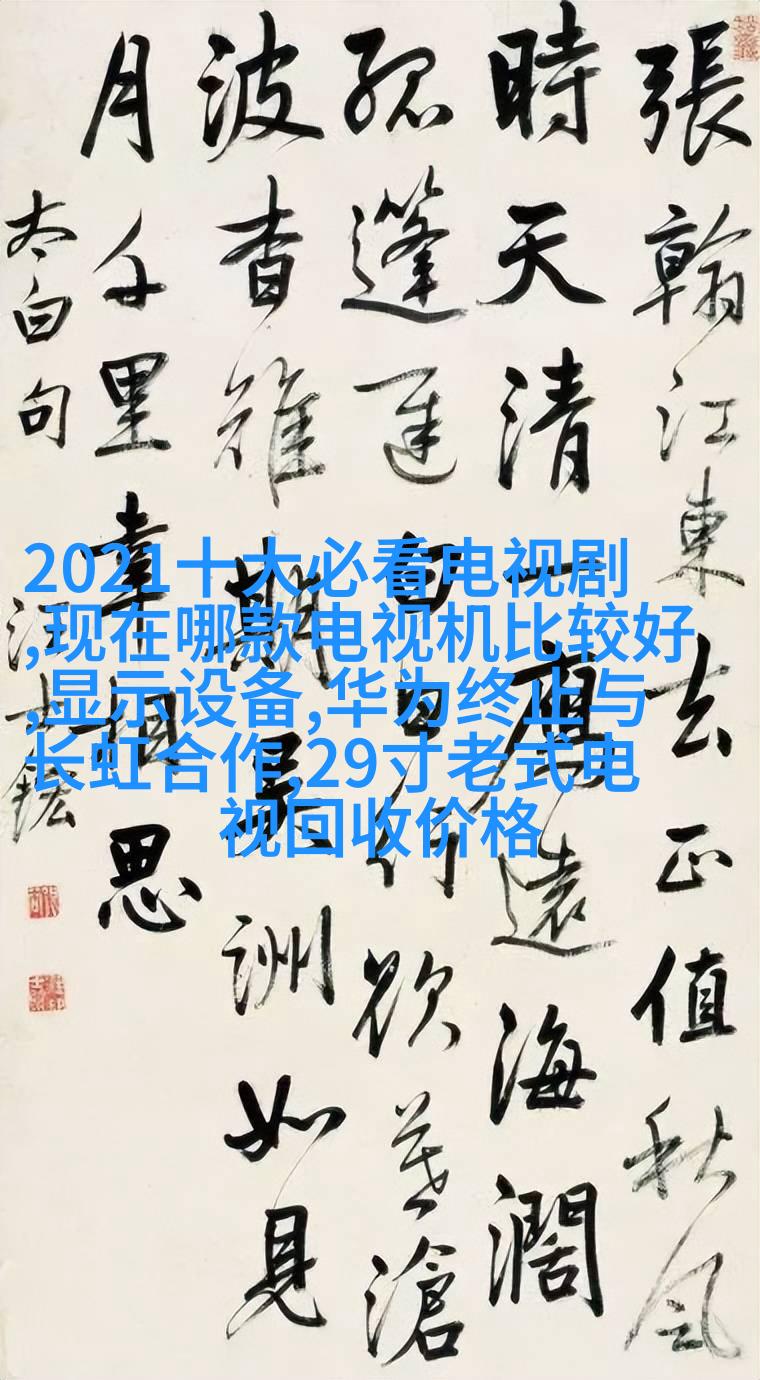 張翰江東去正值秋風
時天清一鴈遠海濶
孤篷遲白日行欲暮滄
波杳難期吳洲如見
月千里幸相思
太白句
汪士鋐
2021十大必看电视剧
,现在哪款电视机比较好
,显示设备,华为终止与
长虹合作,29寸老式电
视回收价格